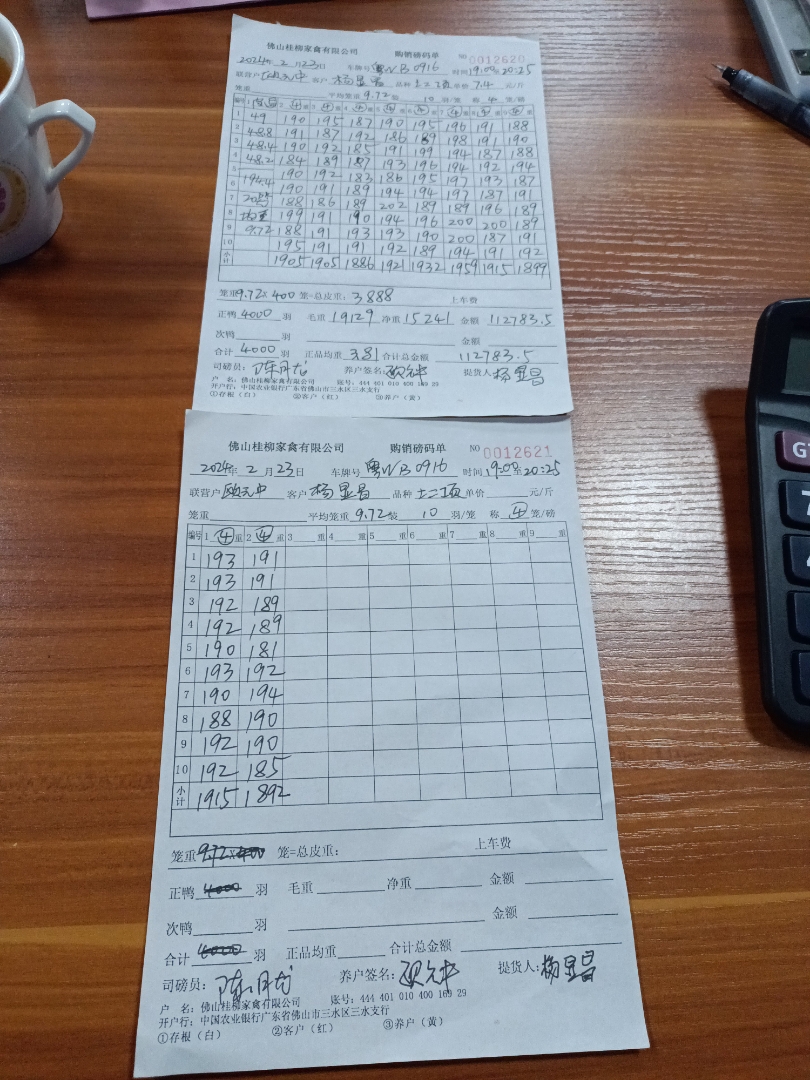 佛山桂柳家禽有限公司 购销磅码单 NO 0012620
2024年 2 月 23日 车牌号 粤WB0916 时间 19:00至20:25
联营户 欧元中 客户 杨显昌 品种 土二项 单价 7.4 元/斤
笼重 平均笼重 9.72 10 羽/笼 称 4 笼/磅
编号 1 重 2 ④ 重 3 ④ 重 4 ④ 重 5 ④ 重 6 ④ 重 7 ④ 重 8 ④ 重 9 ④ 重
1 49 190 195 187 190 195 196 191 188
2 48.8 191 187 192 186 189 198 191 190
3 48.4 190 192 185 191 199 194 187 188
4 48.2 184 189 187 193 196 194 192 194
5 194.4 190 192 183 186 195 197 193 187
6 190 191 189 194 194 197 187 191
7 188 186 189 202 189 189 196 189
8 均重 199 191 190 194 196 200 200 189
9 9.72 188 191 193 193 190 200 187 191
10 195 191 191 192 189 194 191 192
小计 1905 1905 1886 1921 1932 1959 1915 1899
笼重 9.72× 400 笼=总皮重: 3888 上车费
正鸭 4000 羽 毛重 19129 净重 15241 金额 112783.5
次鸭 羽 金额
合计 4000 羽 正品均重 3.81 合计总金额 112783.5
司磅员: 陈月龙 养户签名: 欧元中 提货人: 杨显昌
户 名: 佛山桂柳家禽有限公司 账号: 444 401 010 400 169 29
开户行: 中国农业银行广东省佛山市三水区三水支行
①存根(白) ②客户(红) ③养户(黄)
佛山桂柳家禽有限公司 购销磅码单 NO 0012621
2024年 2 月 23日 车牌号 粤WB0916 时间 19:00至20:25
联营户 欧元中 客户 杨显昌 品种 土二项 单价 元/斤
笼重 平均笼重 9.72 10 羽/笼 称 ④ 笼/磅
编号 1 ④ 重 2 ④ 重 3 重 4 重 5 重 6 重 7 重 8 重 9 重
1 193 191
2 193 191
3 192 189
4 192 189
5 190 181
6 193 192
7 190 194
8 188 190
9 192 190
10 192 185
小计 1915 1892
笼重 9.72×400 笼=总皮重: 上车费
正鸭 4000 羽 毛重 净重 金额
次鸭 羽 金额
合计 4000 羽 正品均重 合计总金额
司磅员: 陈月龙 养户签名: 欧元中 提货人: 杨显昌
户 名: 佛山桂柳家禽有限公司 账号: 444 401 010 400 169 29
开户行: 中国农业银行广东省佛山市三水区三水支行
①存根(白) ②客户(红) ③养户(黄)